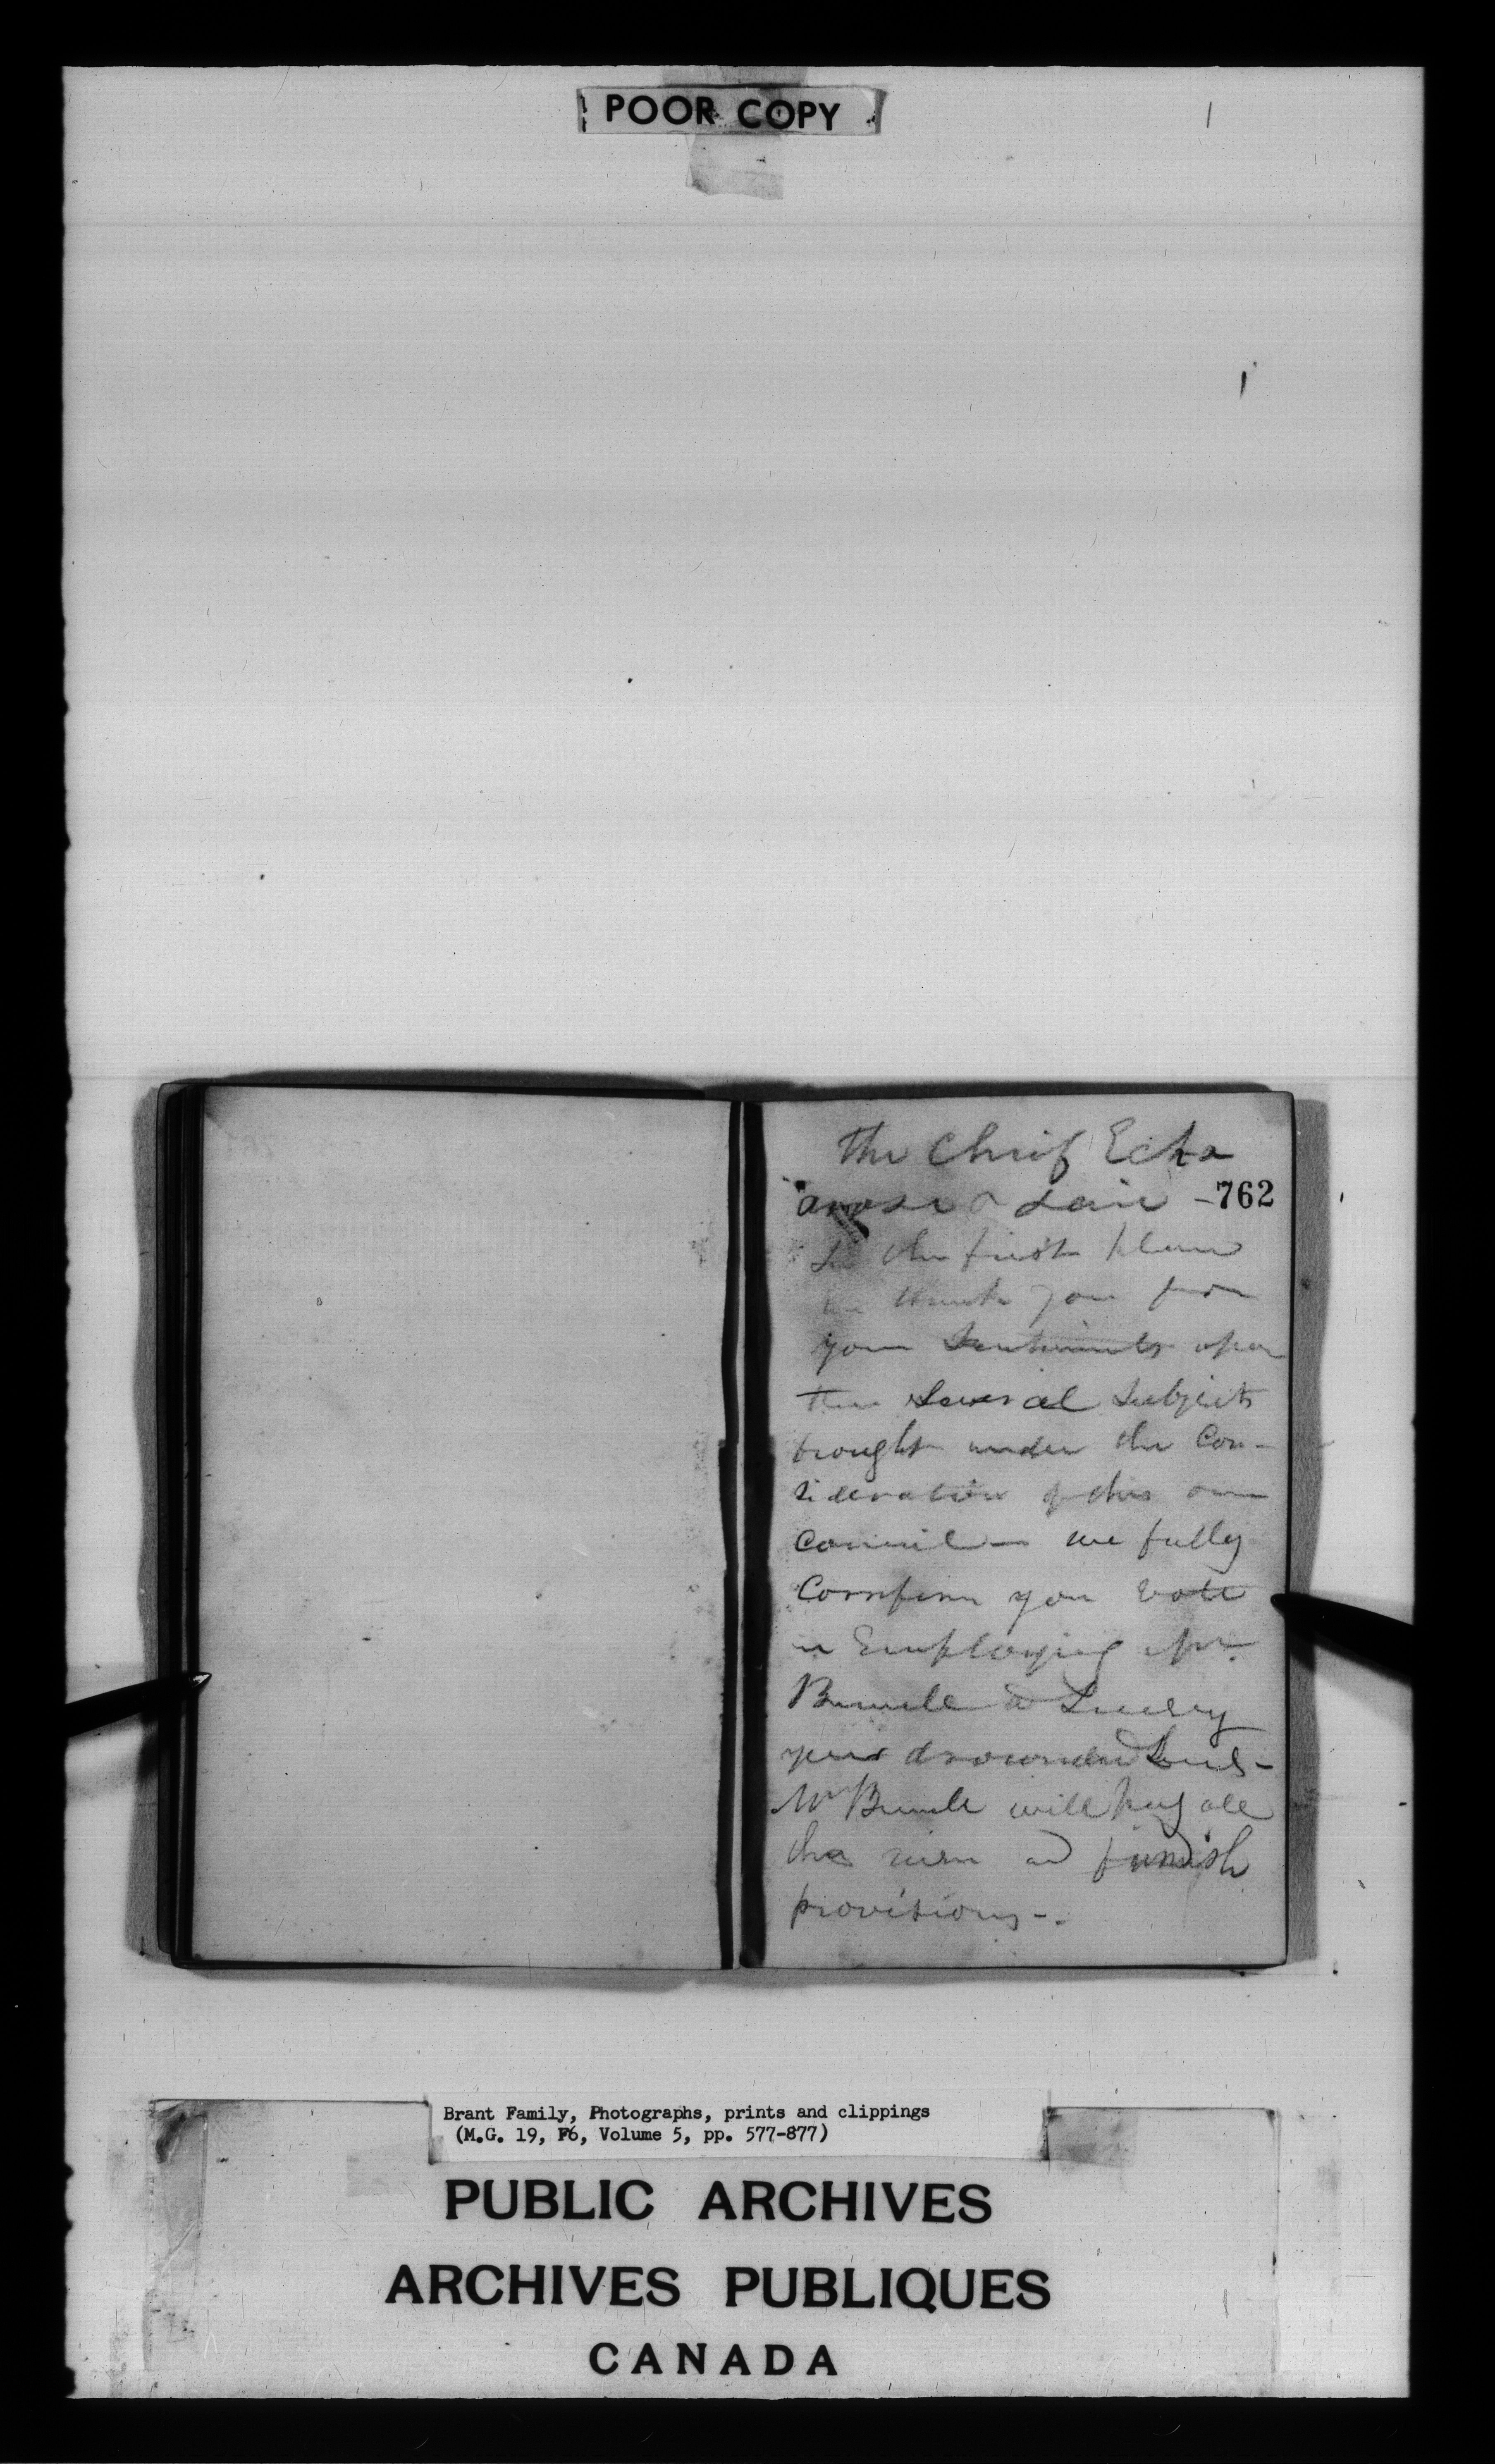 POOR COPY
The Chief Echo
arose & said -762
In the first place
we thank you for
your Sentiments upon
the Several Subjects
brought under the Con-
sideration of this our
Council - we fully
Cornfirm you vote
in Employing Mr
your drowned
Mr will pay all
the men and furnish
provisions -.
Brant Family, Photographs, prints and clippings
(M.G. 19, F6, Volume 5, pp. 577-877)
PUBLIC ARCHIVES
ARCHIVES PUBLIQUES
CANADA